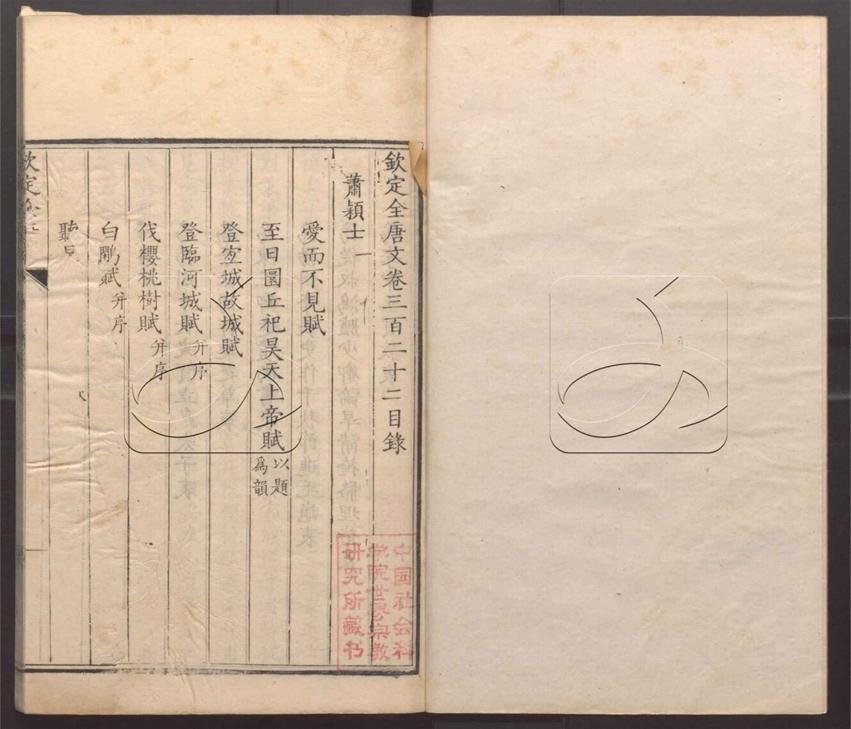 欽定全唐文卷三百二十二目錄
蕭穎士一
愛而不見賦
至日圜丘祀昊天上帝賦以題為韻
登宜城故城賦
登臨河城賦并序
伐櫻桃樹賦并序
白鷴賦并序
聽
欽定全
中国社会科
学院世界宗教
研究所藏书